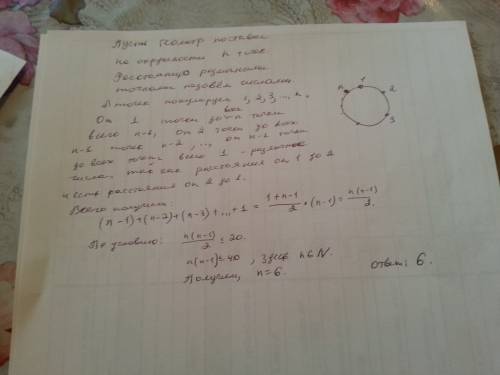 Пусть Геометр поставил
на окружности n точек
Расстояния различными
точками назовём числами
точек пронумеруем 1, 2, 3, ..., n.
От 1 точки до всех точек
всего n-1, от 2 точки до всех
n-1 точек n-2, ..., от n-1 точки
до всех точек всего 1 - различное
число, так как расстояния от 1 до 2
и есть расстояния от 2 до 1.
Всего получим:
(n-1)+(n-2)+(n-3)+...+1 = 1+n-1/2 · (n-1) = n(n-1)/2.
По условию: n(n-1)/2 ≤ 20.
n(n-1) ≤ 40, здесь n∈N.
Получим, n=6.
ответ: 6.
n 1 2 3